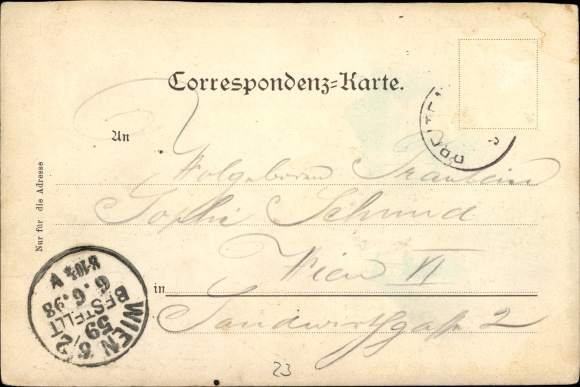 Correspondenz-Karte.
An
Wolgeboren Fraulein
Sophie Schmid
Wien VI
in
Sandwirthgasse 2
Nur für die Adresse
WIEN 6/2
59
BESTELLT
6.6.98
23